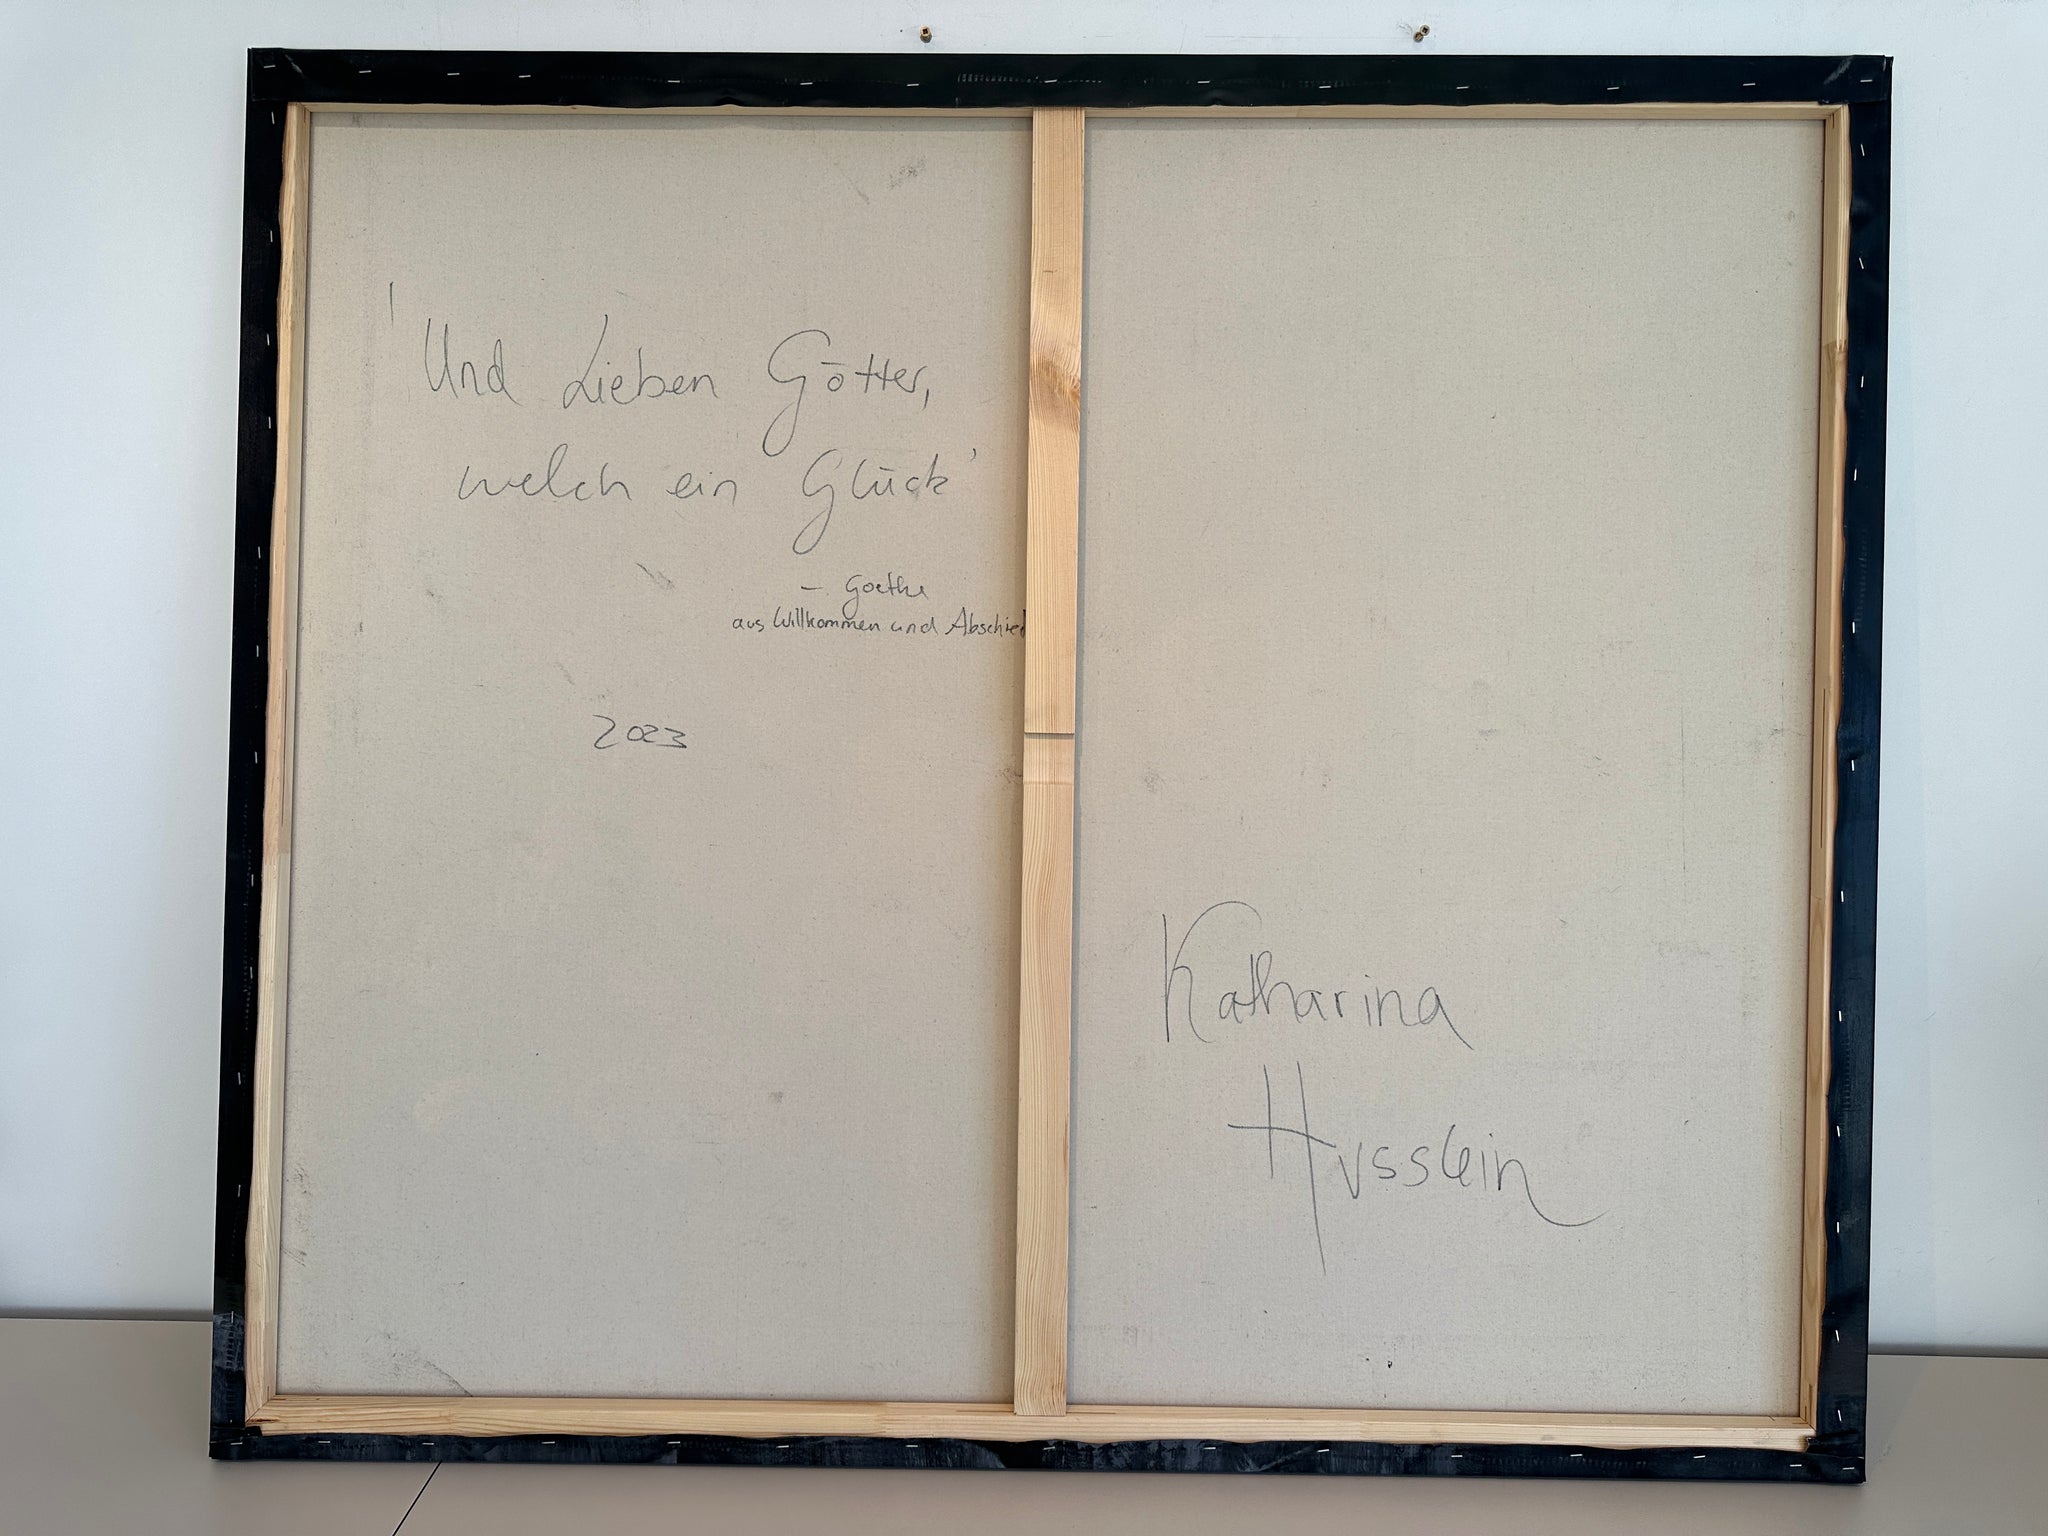 'Und Lieben Götter,
welch ein Glück'
– Goethe
aus Willkommen und Abschied
2023
Katharina
Husslein